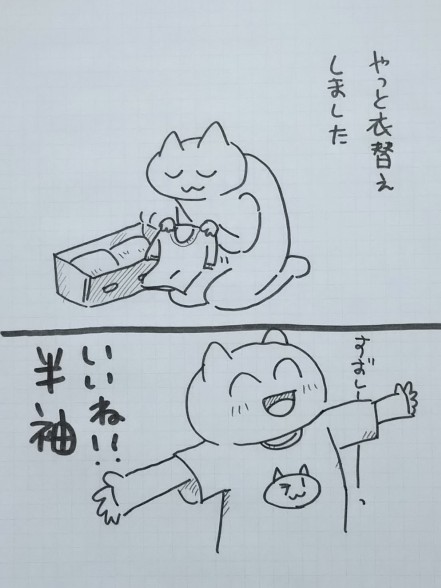 やっと衣替え
しました
すずしーーっ
いいね!!
半袖